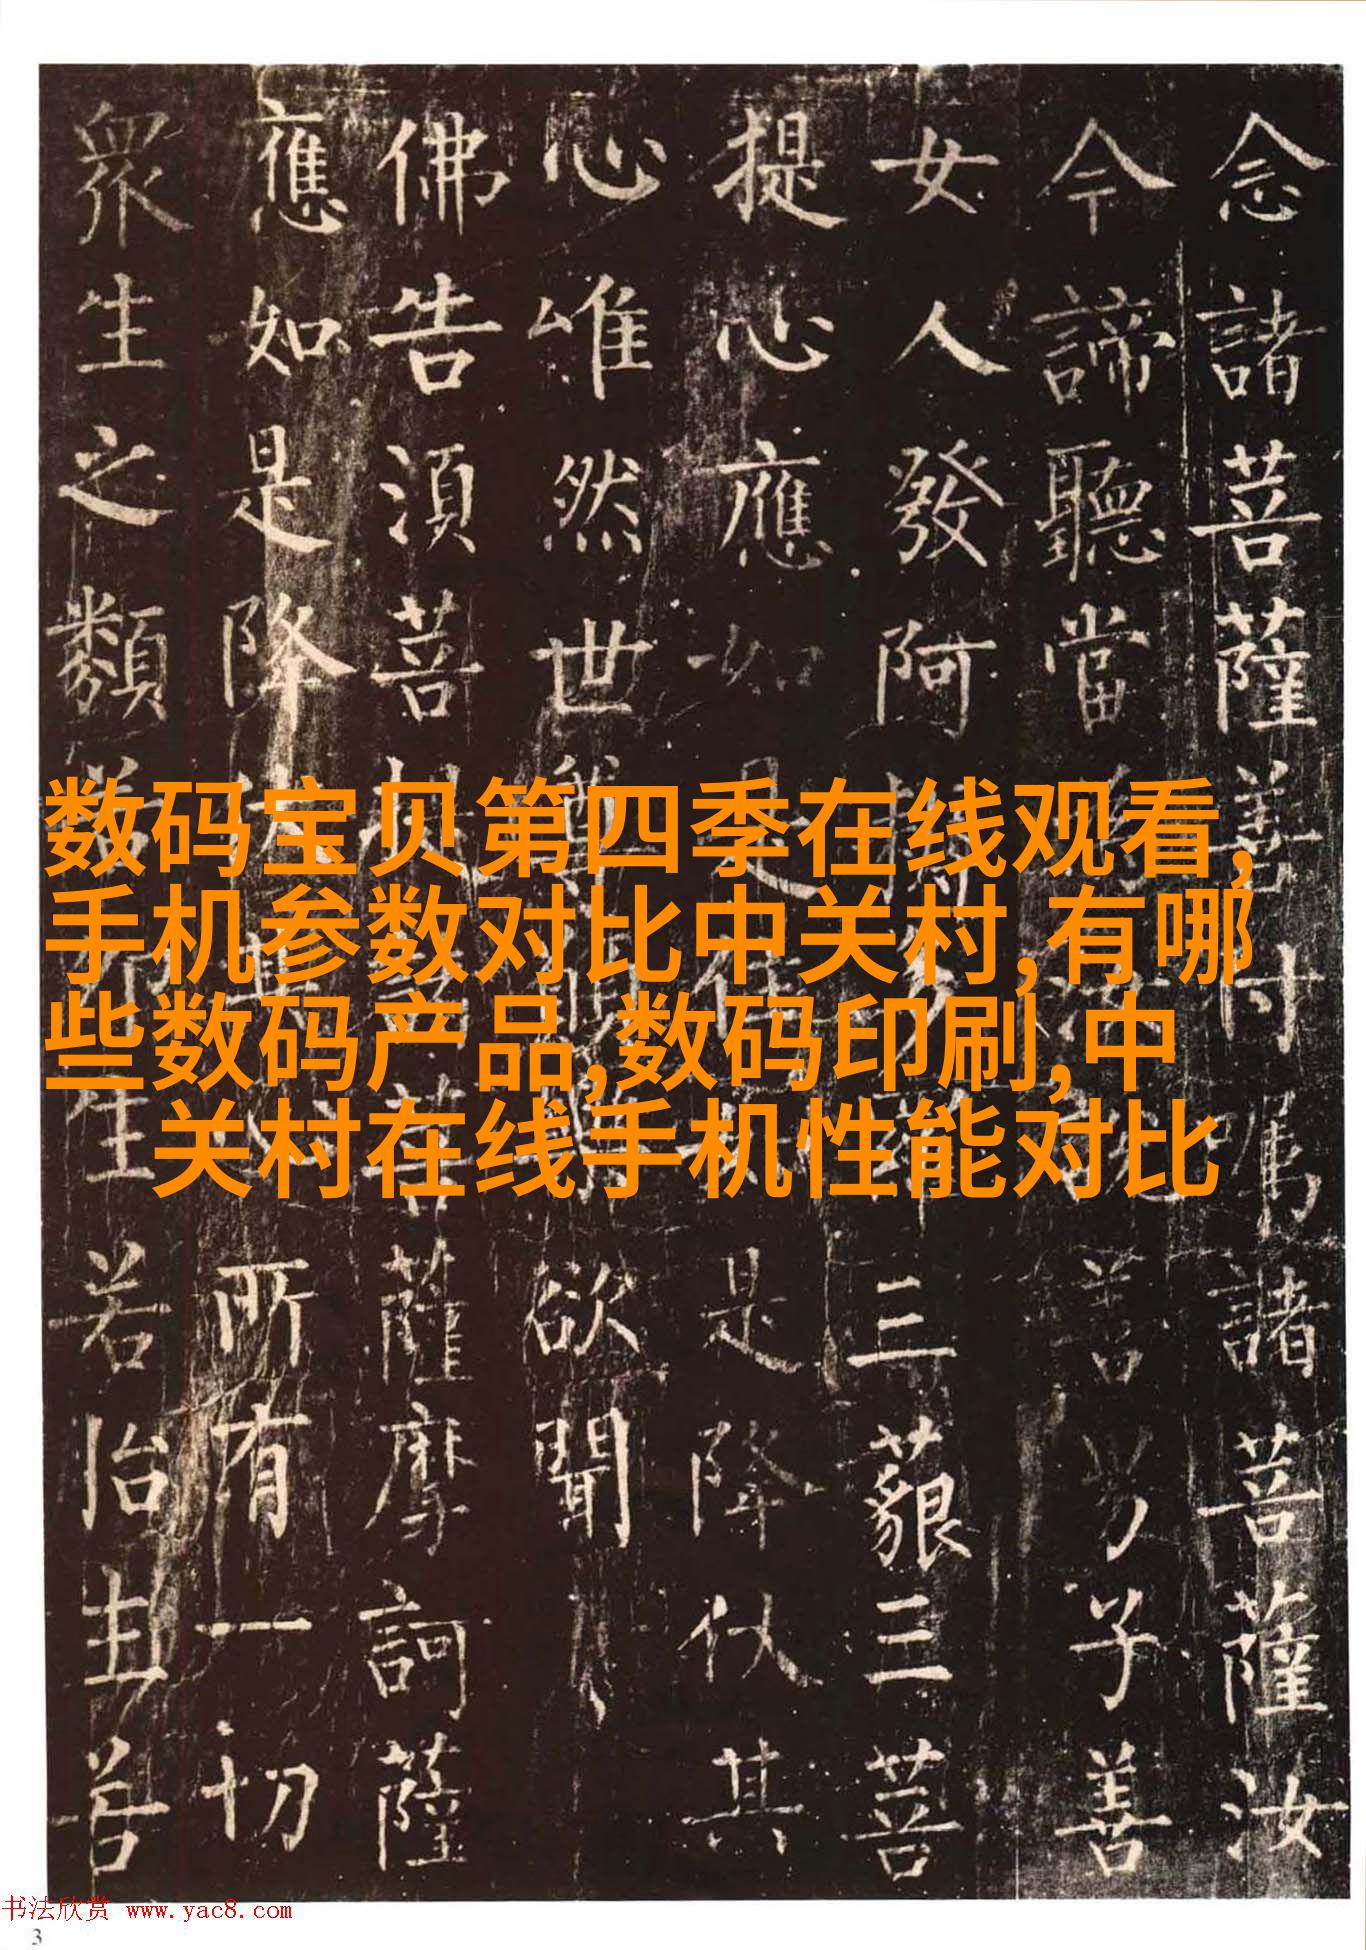 念諸菩薩善付囑諸菩薩汝
今諦聽當善男子善
女人發阿三藐三菩
提心應如是住是降伏其
心唯然世欲聞
佛告須菩菩薩摩訶薩
應如是降其所有一切
眾生之類生若胎生若
数码宝贝第四季在线观看,
手机参数对比中关村,有哪
些数码产品,数码印刷,中
关村在线手机性能对比
书法欣赏 www.yac8.com
3